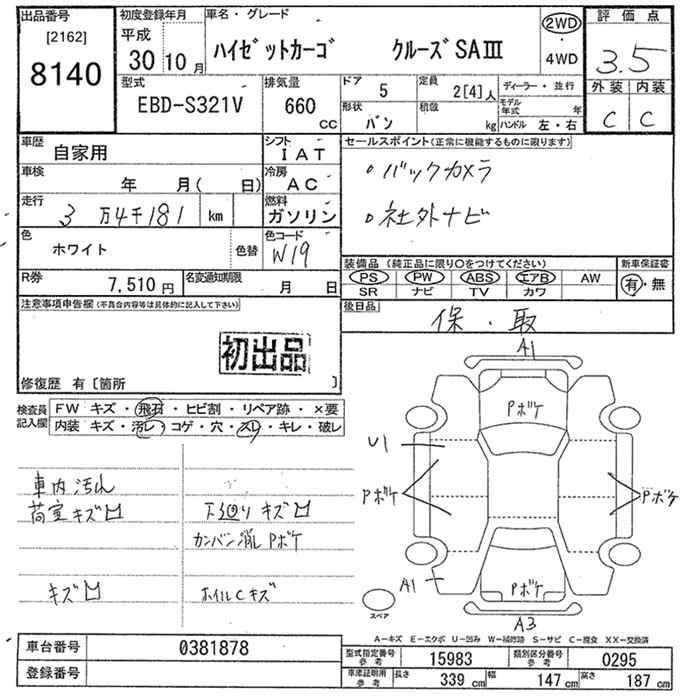 出品番号
[2162]
8140
初度登録年月
平成
30 10 月
車名・グレード
ハイゼットカーゴ クルーズSAⅢ
2WD
・
4WD
評価点
3.5
外装 内装
C C
型式
EBD-S321V
排気量
660
CC
ドア
5
定員
2[4]人
形状
バン
積載
kg
ディーラー・並行
モデル年式 年
ハンドル 左・右
車歴
自家用
シフト
IAT
車検
年 月( 日)
冷房
AC
走行
3万4千181 km
燃料
ガソリン
色
ホワイト
色替
色コード
W19
R券
7,510円
名変通知期限
月 日
セールスポイント(正常に機能するものに限ります)
・バックカメラ
・社外ナビ
装備品(純正品に限り○をつけてください)
PS PW ABS エアB AW
SR ナビ TV カワ
新車保証書
有・無
後日品
保・取
注意事項申告欄(不具合内容等は具体的に記入して下さい)
初出品
修復歴 有〔箇所 〕
検査員記入欄
FW キズ・飛石・ヒビ割・リペア跡・×要
内装 キズ・汚レ・コゲ・穴・スレ・キレ・破レ
車内汚れ
荷室キズ凹
下廻りキズ凹
カンバン消しPボケ
キズ凹
ホイルCキズ
A1
Pボケ
U1
Pボケ
Pボケ
A1
Pボケ
A3
スペア
A-キズ E-エクボ U-凹み W-補修跡 S-サビ C-腐食 XX-交換済
車台番号
0381878
登録番号
型式指定番号 参考
15983
類別区分番号 参考
0295
車庫証明用 参考
長さ 339 cm 幅 147 cm 高さ 187 cm